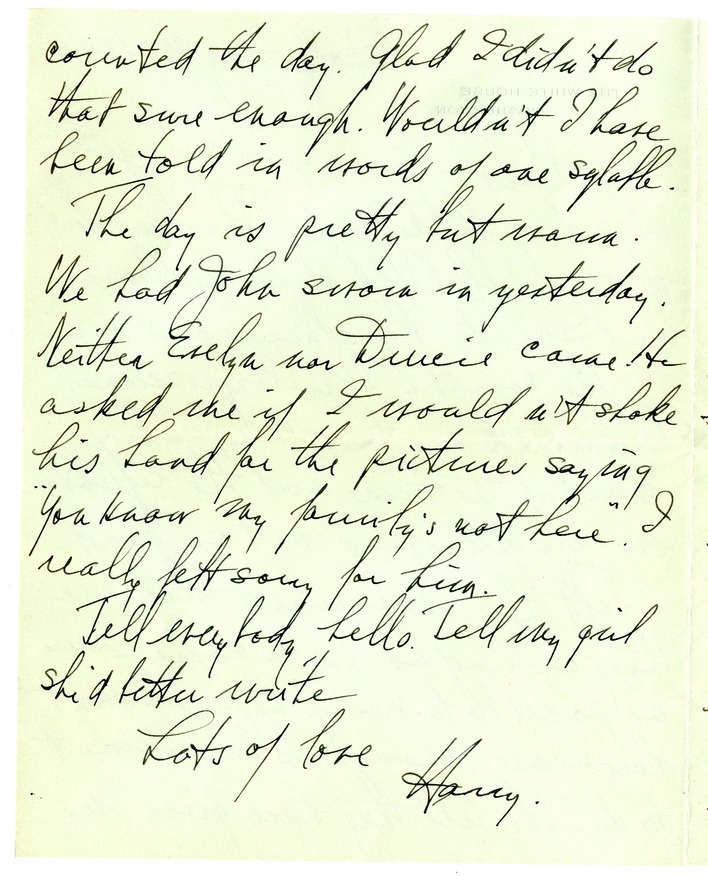 counted the day. Glad I didn't do
that sure enough. Wouldn't I have
been told in words of one syllable.
The day is pretty but warm.
We had John sworn in yesterday.
Neither Evelyn nor Drucie came. He
asked me if I wouldn't shake
his hand for the pictures saying
"You know my family's not here". I
really felt sorry for him.
Tell everybody hello. Tell my girl
she'd better write
Lots of love
Harry.
THE WHITE HOUSE
WASHINGTON